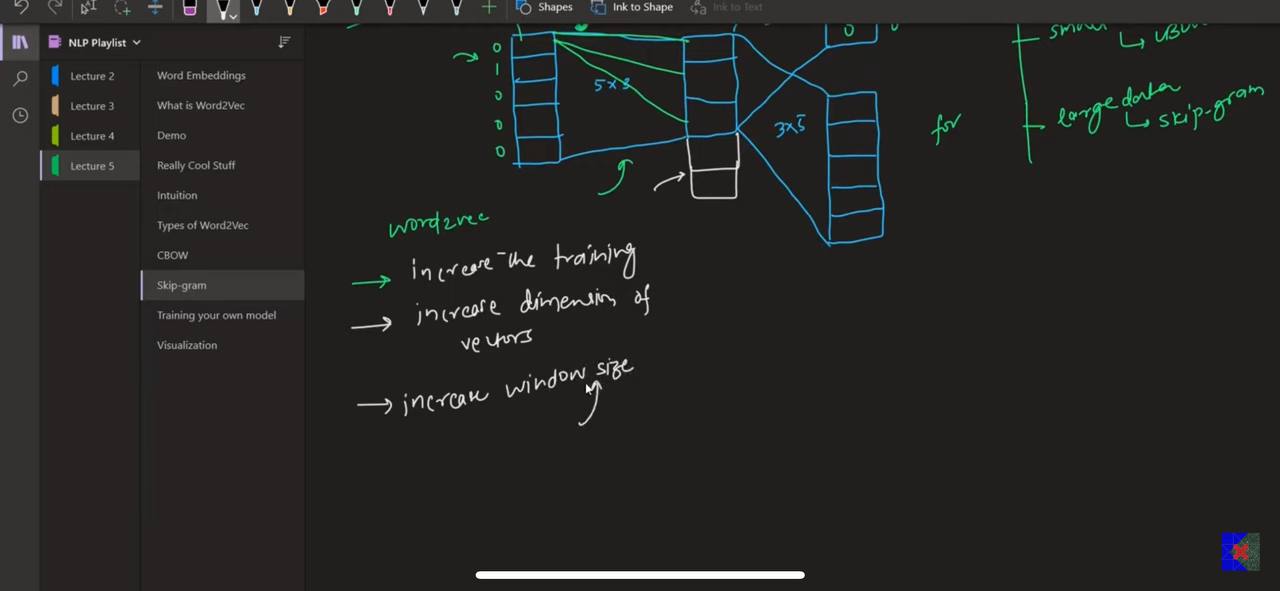 Shapes
Ink to Shape
Ink to Text
NLP Playlist
Lecture 2
Lecture 3
Lecture 4
Lecture 5
Word Embeddings
What is Word2Vec
Demo
Really Cool Stuff
Intuition
Types of Word2Vec
CBOW
Skip-gram
Training your own model
Visualization
0
1
0
0
0
5x3
3x5
0
for
large data
skip-gram
word2vec
→ increase the training
→ increase dimension of
vectors
→ increase window size